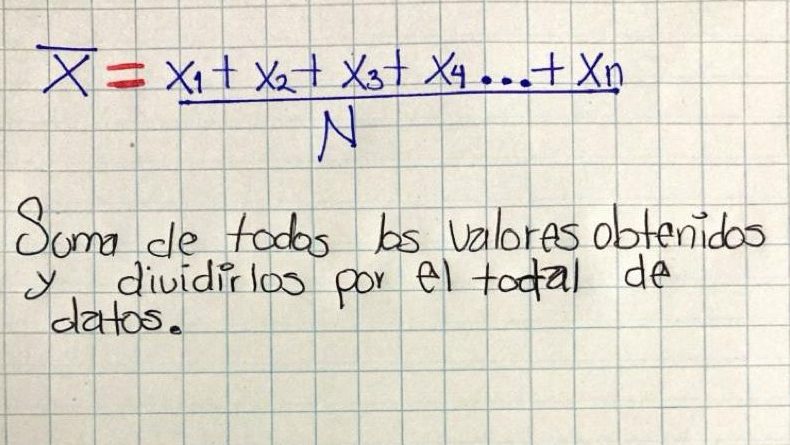 X̅ = X₁ + X₂ + X₃ + X₄ ... + Xn
N
Suma de todos los valores obtenidos
y dividirlos por el total de
datos.